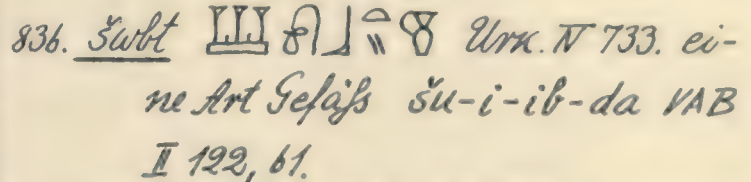 836. šwbt 𓆷𓍯𓃀𓏏𓏭𓎺 Urk. IV 733. ei-
ne Art Gefäß šu-i-ib-da VAB
II 122, 61.